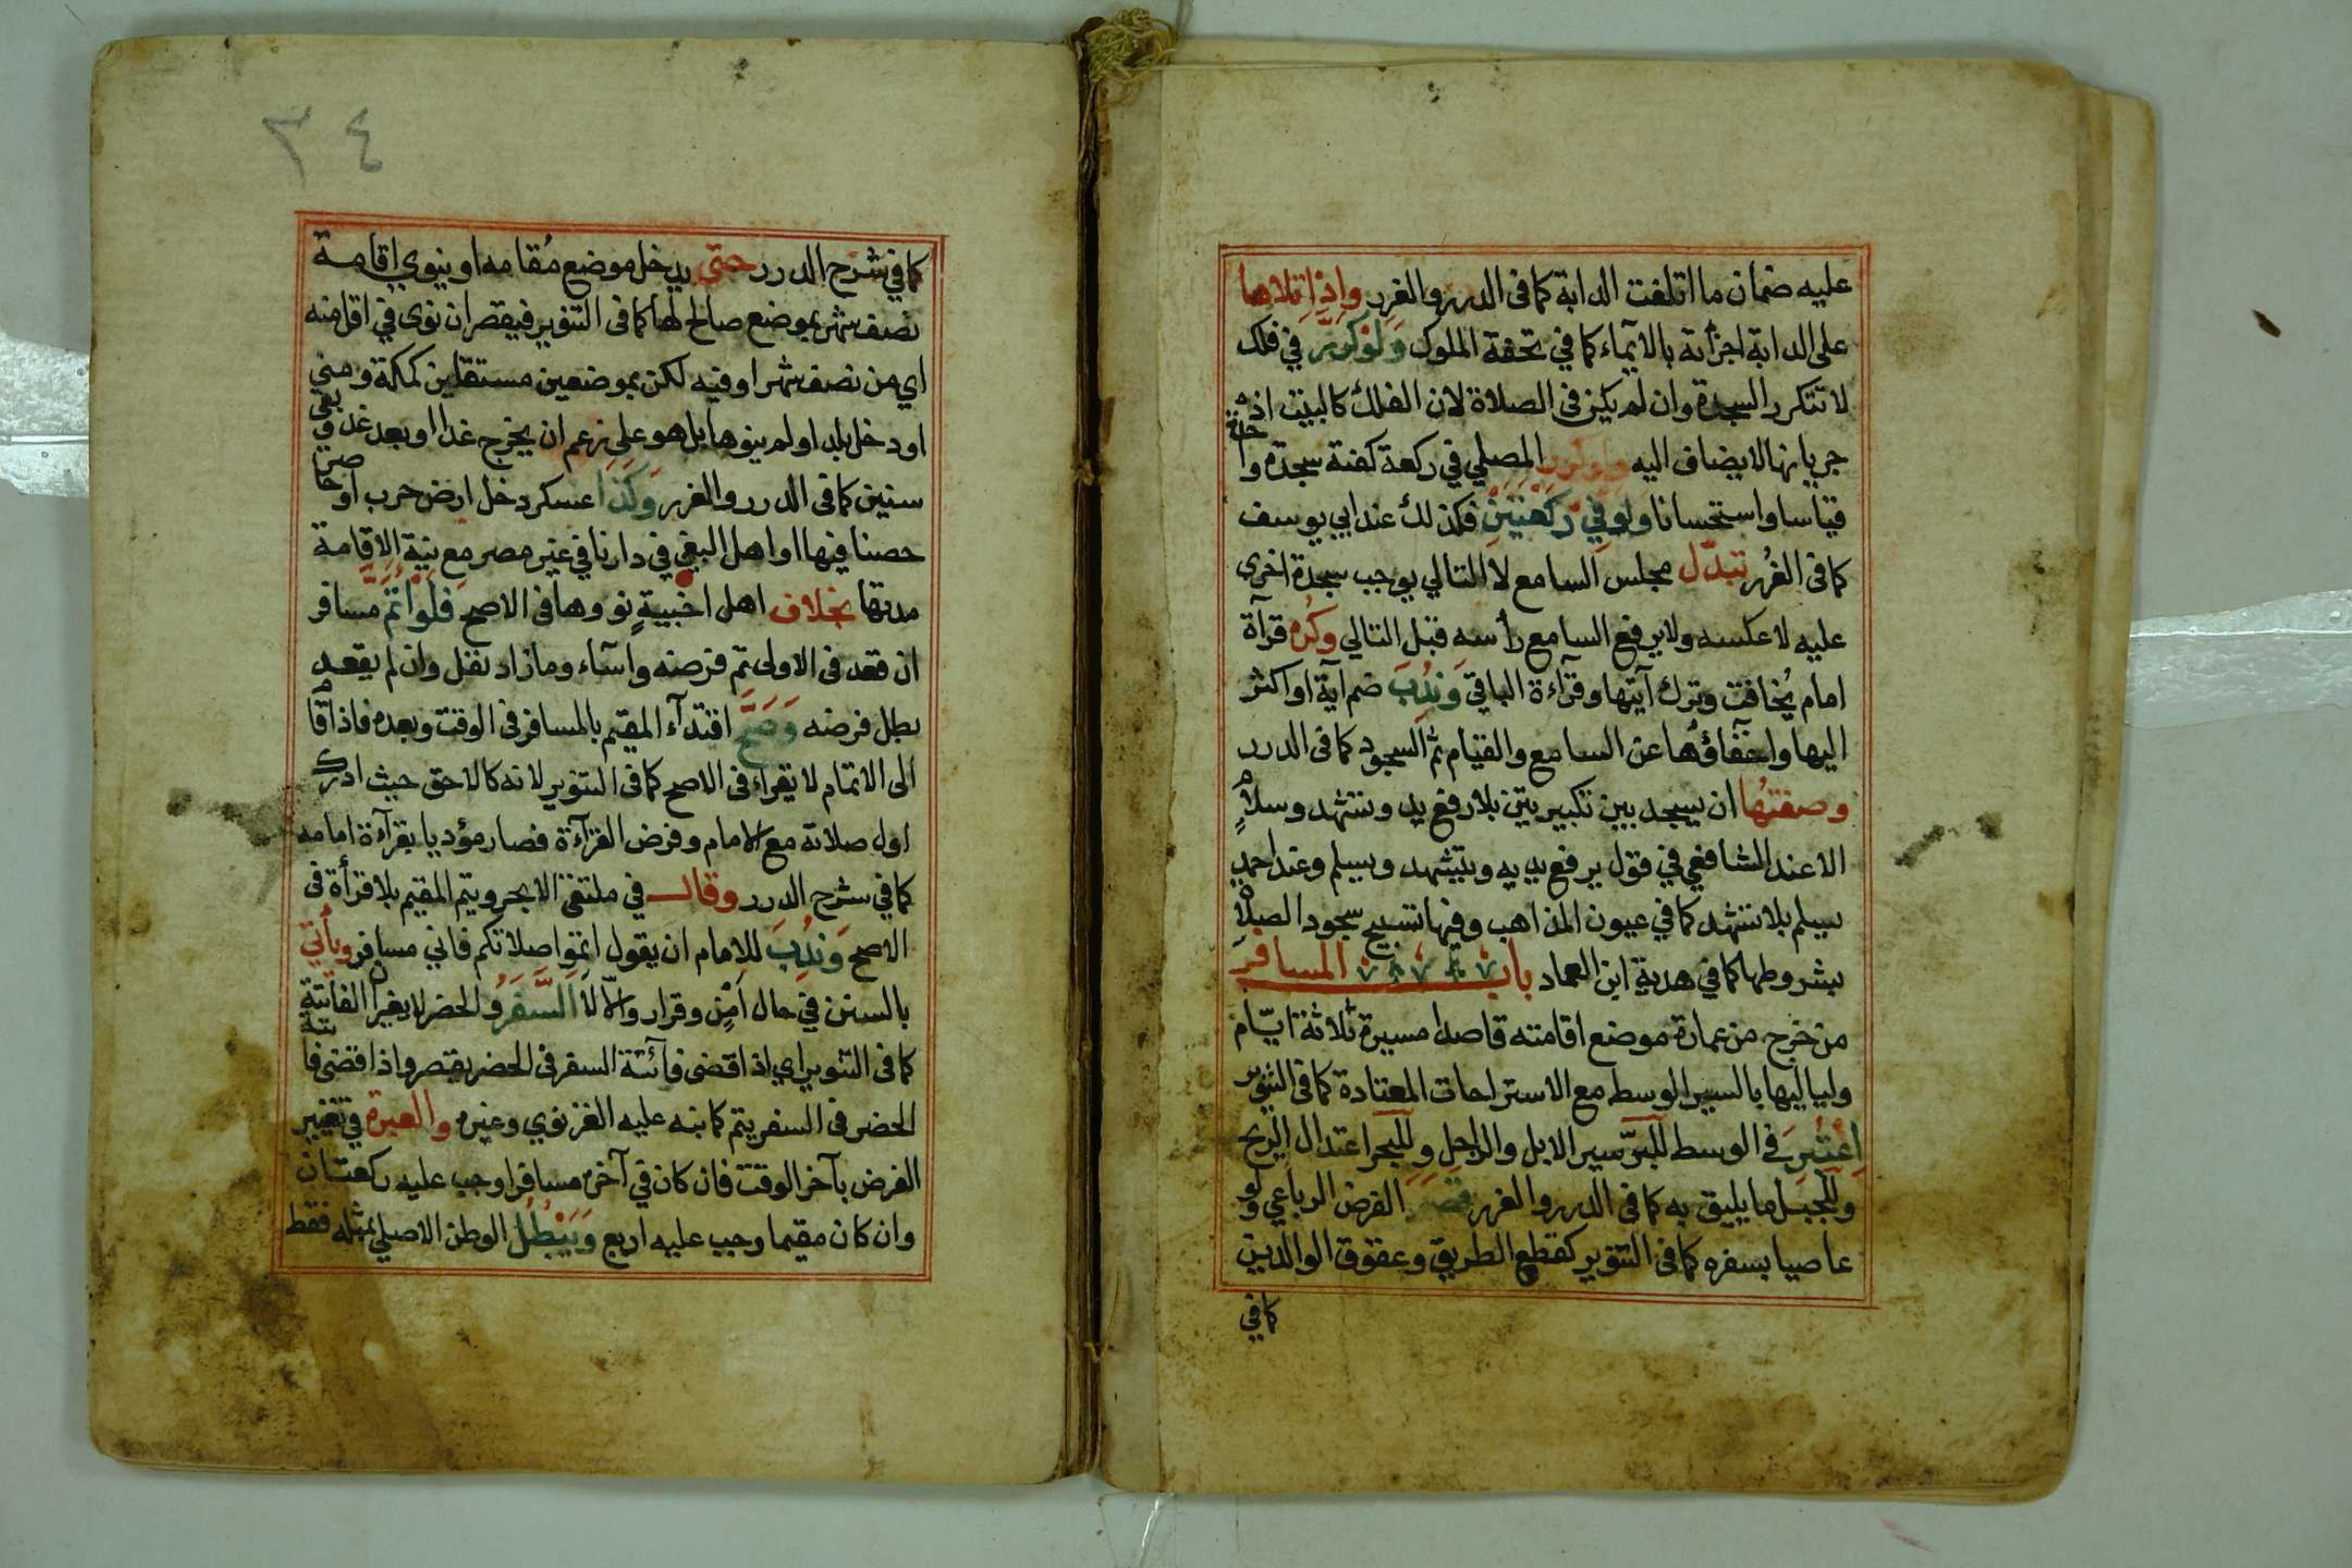 عليه ضمان ما اتلفت الدابة كما فى الدرر والغرر واذا تلاها
على الدابة اجزأته بالايماء كما في تحفة الملوك ولو كرر في فلك
لا تتكرر السجدة وان لم يكن فى الصلاة لان الفلك كالبيت اذ
جريانها لا يضاف اليه ولو كرر المصلي في ركعة كفته سجدة واحدة
قياسا واستحسانا ولو في ركعتين فكذلك عند ابي يوسف
كما فى الغرر تبدل مجلس السامع لا التالي يوجب سجدة اخرى
عليه لا عكسه ولا يرفع السامع رأسه قبل التالي وكره قرآة
امام يُخافت وترك آيتها وقرآءة الباقي وندب ضم آية او اكثر
اليها واخفاؤها عن السامع والقيام ثم السجود كما فى الدرر
وصفتها ان يسجد بين تكبيرتين بلا رفع يد وتشهد وسلام
الا عند الشافعي في قول يرفع يديه ويتشهد ويسلم وعند احمد
يسلم بلا تشهد كما في عيون المذاهب وفيها تسبيح سجود الصلاة
بشروطها كما في هدية ابن العماد باب المسافر
من خرج من عمارة موضع اقامته قاصدا مسيرة ثلاثة ايام
ولياليها بالسير الوسط مع الاستراحات المعتادة كما فى التنوير
اعتبر في الوسط للبر سير الابل والراجل وللبحر اعتدال الريح
وللجبل ما يليق به كما فى الدرر والغرر قصر الفرض الرباعي ولو
عاصيا بسفره كما فى التنوير كقطع الطريق وعقوق الوالدين
كما في
٣٤
كما في شرح الدرر حتى يدخل موضع مُقامه او ينوي اقامة
نصف شهر بموضع صالح لها كما فى التنوير فيقصر ان نوى في اقل منه
اي من نصف شهر او فيه لكن بموضعين مستقلين كمكة ومنى
او دخل بلدا ولم ينوها بل هو على زعم ان يخرج غدا او بعد غد وبقي
سنين كما فى الدرر والغرر وكذا عسكر دخل ارض حرب او حاصر
حصنا فيها او اهل البغي في دارنا في غير مصر مع نية الاقامة
مدتها بخلاف اهل اخبية نووها فى الاصح فلو اتم مسافر
ان قعد فى الاولى تم فرضه واسآء وما زاد نفل وان لم يقعد
بطل فرضه وصح اقتدآء المقيم بالمسافر فى الوقت وبعده فاذا قام
الى الاتمام لا يقرأ فى الاصح كما فى التنوير لانه كالاحق حيث ادرك
اول صلاته مع الامام وفرض القرآءة فصار مؤديا بقرآءة امامه
كما في شرح الدرر وقال في ملتقى الابحر ويتم المقيم بلا قرأة فى
الاصح وندب للامام ان يقول اتموا صلاتكم فاني مسافر ويأتي
بالسنن في حال أمن وقرار والا لا السفر والحضر لا يغيران الفائتة
كما فى التنوير اي اذا قضى فائتة السفر فى الحضر يقصر واذا قضى فائتة
الحضر فى السفر يتم كما نبه عليه الغزنوي وغيره والعبرة في تغيير
الفرض بآخر الوقت فان كان في آخره مسافرا وجب عليه ركعتان
وان كان مقيما وجب عليه اربع ويبطل الوطن الاصلي بمثله فقط